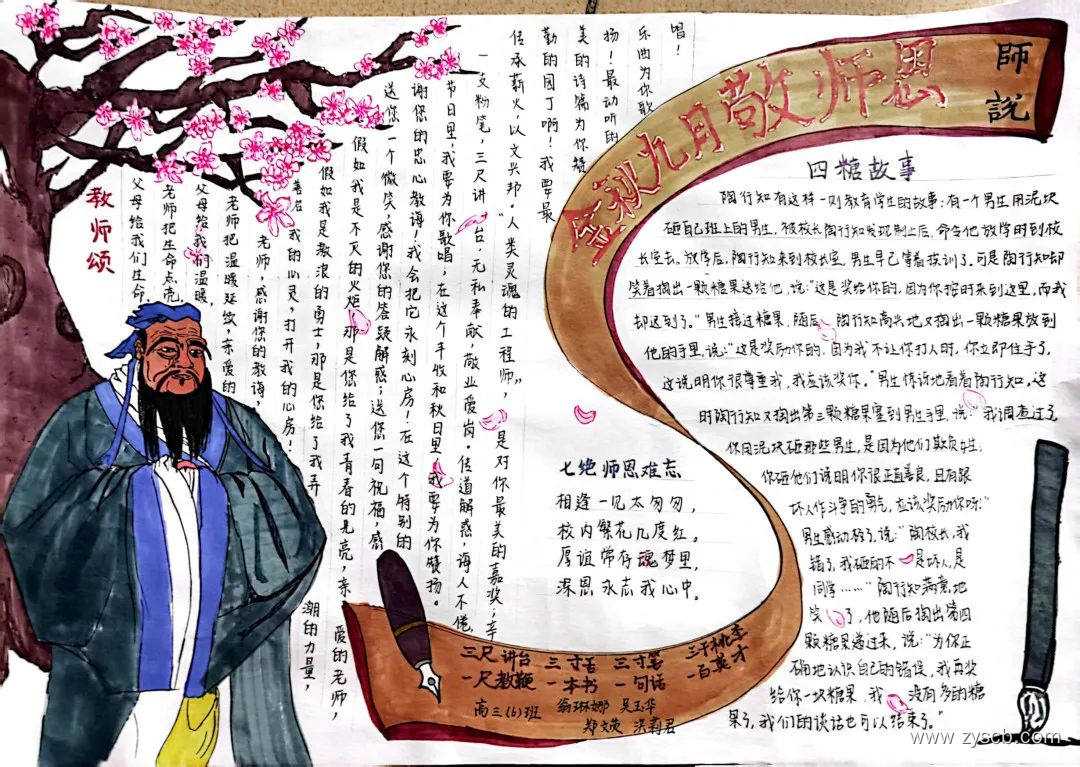 師說
金秋九月敬师恩
教师颂
父母给我们生命，
老师把生命点亮，
父母给我们温暖，
老师把温暖延续，亲爱的
老师，感谢您的教诲，
我的心灵，打开我的心房！
假如我是教浪的勇士，那是您给了我弄
潮的力量，
假如我是不灭的火炬，那是您给了我青春的光亮，亲
爱的老师，
送您一个微笑，感谢您的答疑解惑；送您一句祝福，感
谢您的忠心教诲！我会把它永刻心房！在这个特别的
节日里，我要为你歌唱，在这个丰收和秋日里，我要为你赞扬。
一支粉笔，三尺讲台，无私奉献，敬业爱岗。传道解惑，诲人不倦，
传承薪火，以文兴邦。人类灵魂的工程师”，是对你最美的嘉奖；辛
勤的园丁啊！我要最
美的诗篇为你赞
扬！最动听的
乐曲为你歌
唱！
七绝师恩难忘
相逢一见太匆匆，
校内繁花几度红。
厚谊常存魂梦里，
深恩永志我心中。
四糖故事
陶行知有这样一则教育学生的故事：有一个男生用泥块
砸自己班上的男生，被校长陶行知发现制止后，命令他放学时到校
长室去。放学后，陶行知来到校长室，男生早已等着挨训了。可是陶行知却
笑着掏出一颗糖果送给他，说：“这是奖给你的，因为你按时来到这里，而我
却迟到了。”男生接过糖果，随后，陶行知高兴地又掏出一颗糖果放到
他的手里，说：“这是奖励你的，因为我不让你打人时，你立即住手了，
这说明你很尊重我，我应该奖你。”男生惊讶地看着陶行知，这
时陶行知又掏出第三颗糖果塞到男生手里，说：“我调查过了
你用泥块砸那些男生，是因为他们欺负女生；
你砸他们说明你很正直善良，且有跟
坏人作斗争的勇气，应该奖励你呀！”
男生感动极了，说：“陶校长，我
错了，我砸的不是坏人，是
同学……”陶行知满意地
笑了，他随后掏出第四
颗糖果递过来，说：“为你正
确地认识自己的错误，我再奖
给你一块糖果，我没有多的糖
果了，我们的谈话也可以结束了。”
三尺讲台 三寸舌 三寸笔 三千桃李
一尺教鞭 一本书 一句话 一百英才
高三(6)班 翁琳娜 吴玉华
郑文焕 洪莉君
www.zyscb.com